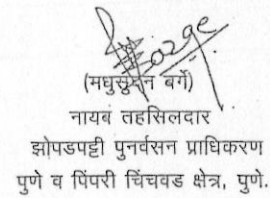 (मधुसुदन बर्गे)
नायब तहसिलदार
झोपडपट्टी पुनर्वसन प्राधिकरण
पुणे व पिंपरी चिंचवड क्षेत्र, पुणे.